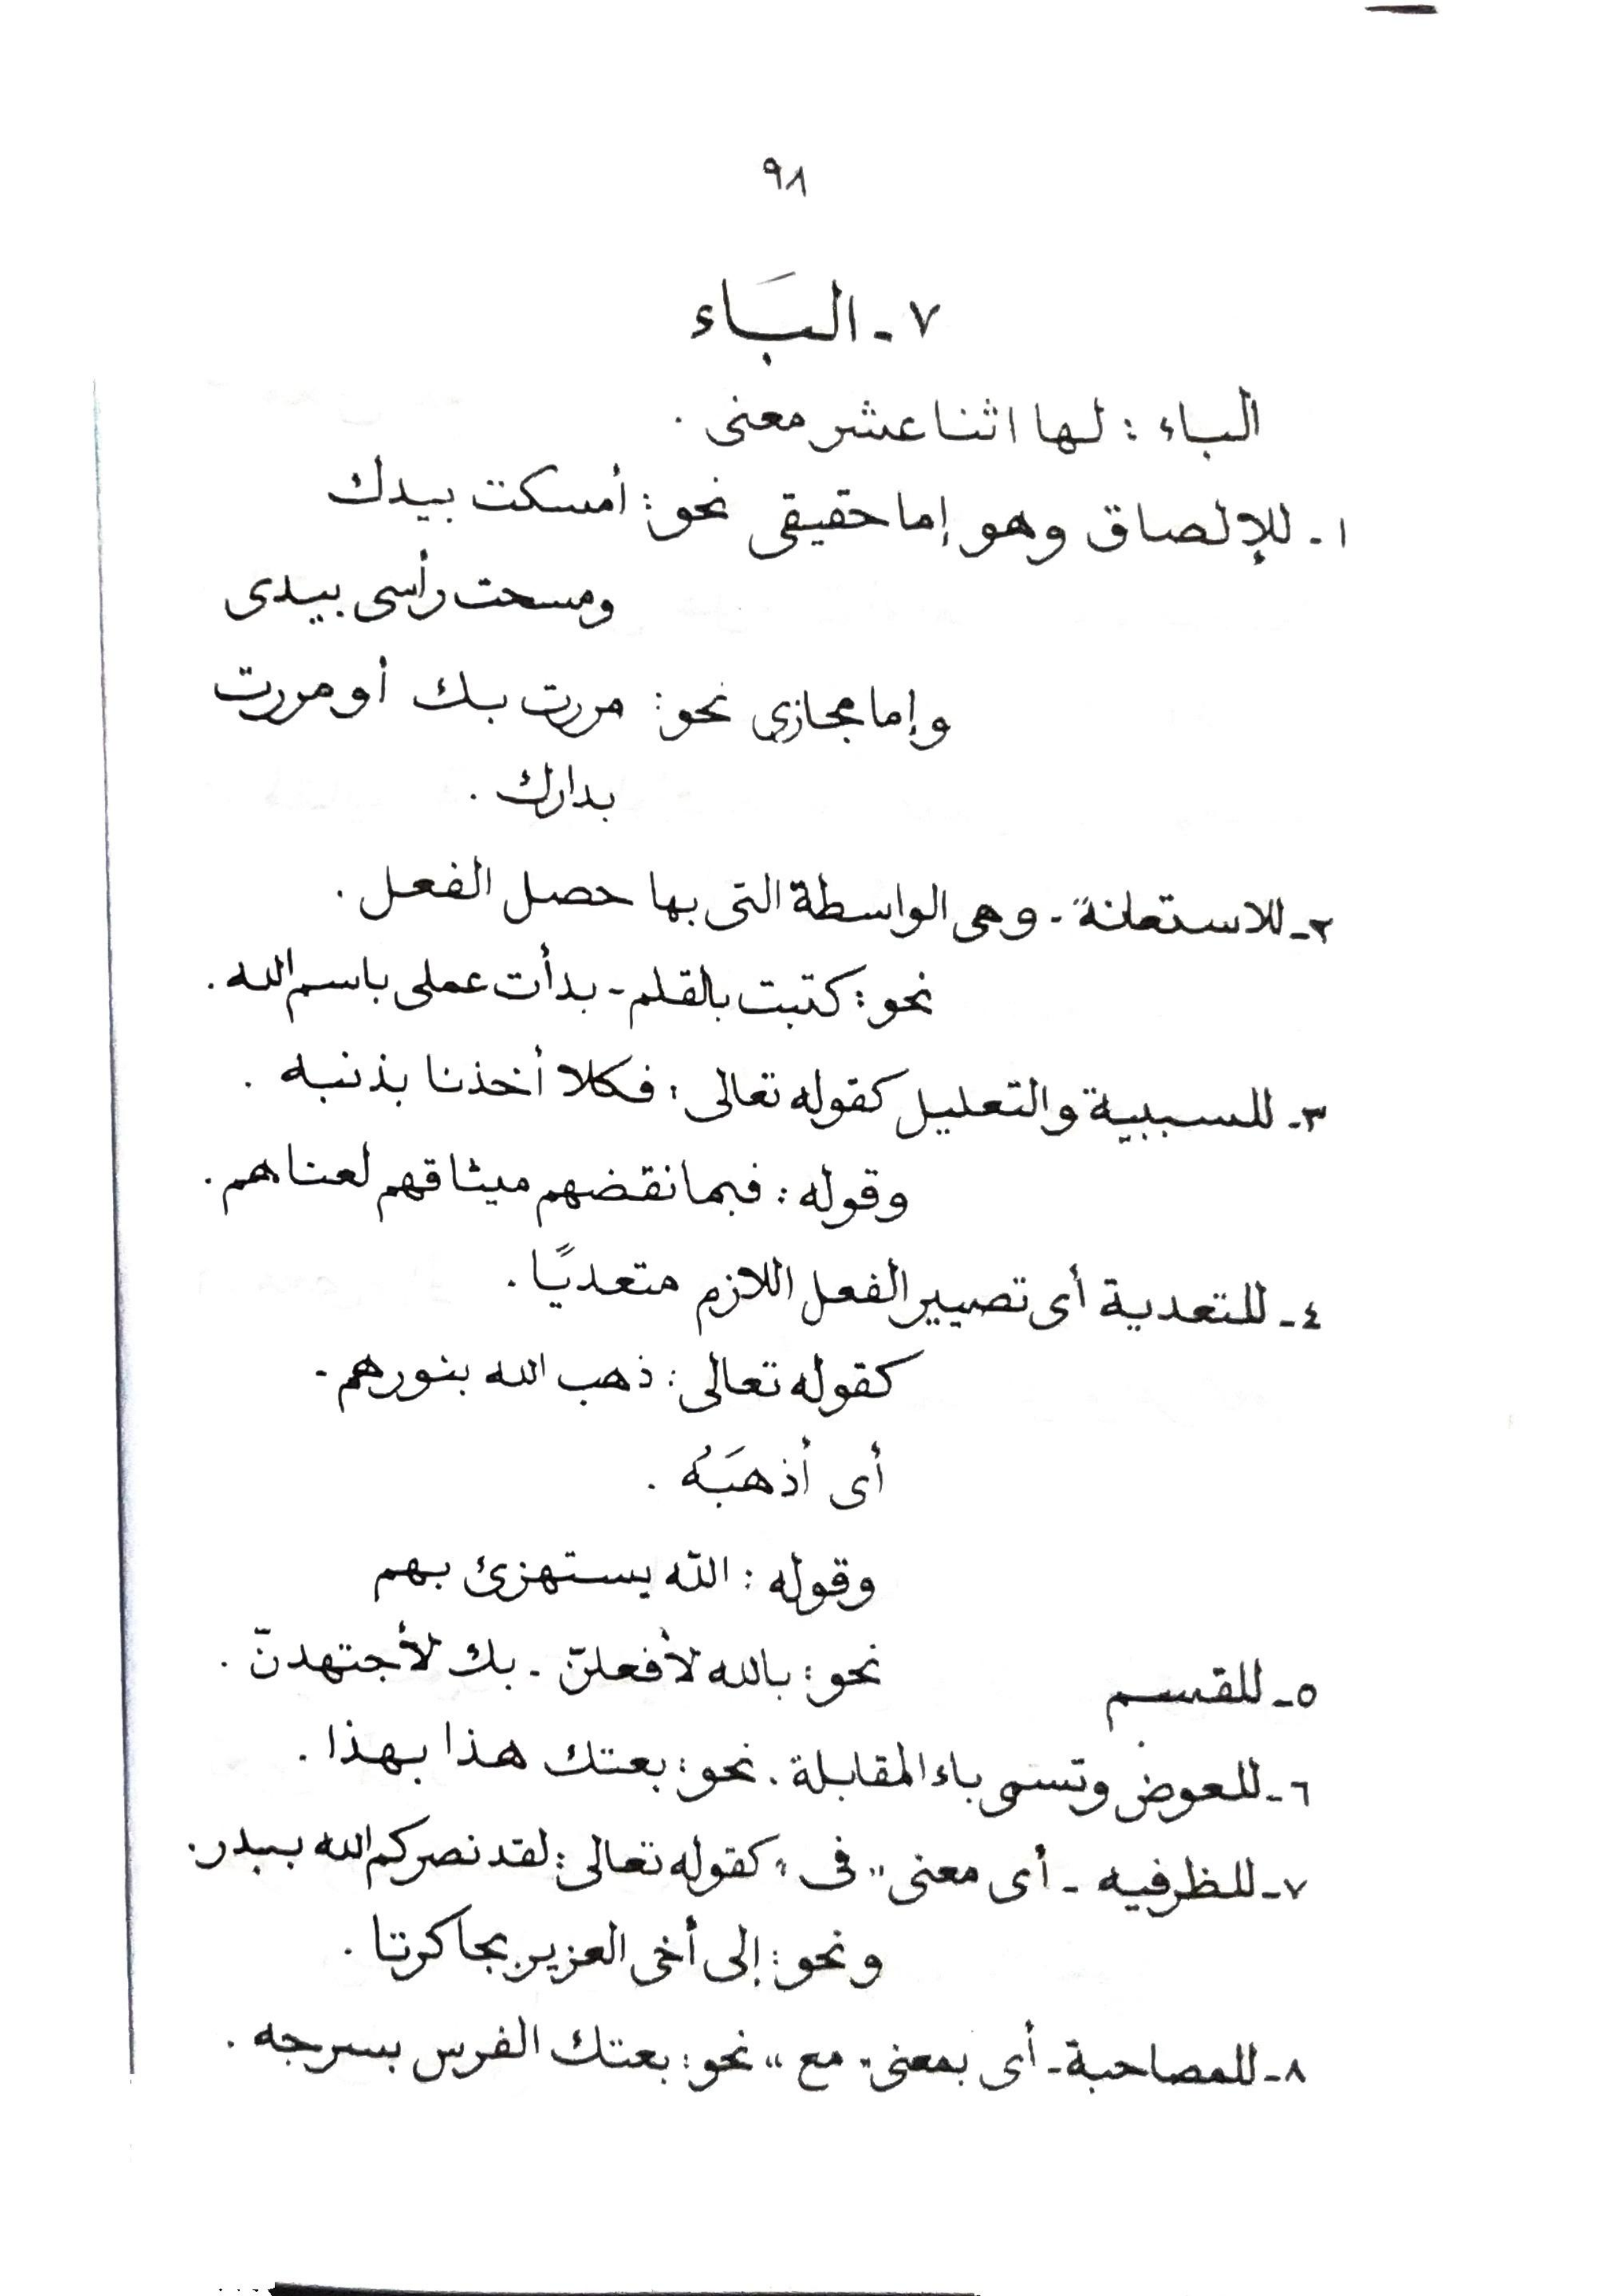 ٩٨
٧ - البَاء
الباء : لها اثنا عشر معنى .
١ - للإلصاق وهو إما حقيقى نحو : أمسكت بيدك
ومسحت رأسى بيدى
وإما مجازي نحو : مررت بك أو مررت
بدارك .
٢ - للاستعانة - وهى الواسطة التى بها حصل الفعل .
نحو : كتبت بالقلم - بدأت عملى باسم الله .
٣ - للسببية والتعليل كقوله تعالى : فكلا أخذنا بذنبه .
وقوله : فبما نقضهم ميثاقهم لعناهم .
٤ - للتعدية أى تصيير الفعل اللازم متعديًا .
كقوله تعالى : ذهب الله بنورهم -
أى أذهبَهُ .
وقوله : الله يستهزئ بهم
٥ - للقسم نحو : بالله لأفعلنّ - بك لأجتهدنّ .
٦ - للعوض وتسمى باء المقابلة . نحو : بعتك هذا بهذا .
٧ - للظرفيه - أى معنى " فى " كقوله تعالى : لقد نصركم الله ببدر .
ونحو : إلى أخى العزيز بجاكرتا .
٨ - للمصاحبة - أى بمعنى " مع " نحو : بعتك الفرس بسرجه .